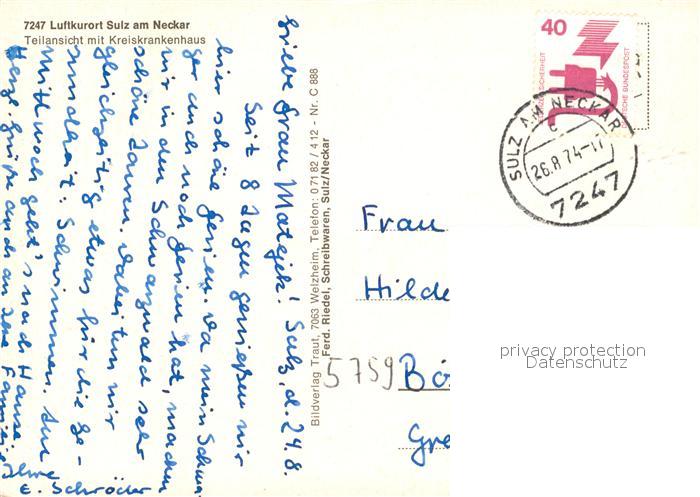 7247 Luftkurort Sulz am Neckar
Teilansicht mit Kreiskrankenhaus
Sulz, d. 24.8.
Liebe Frau Matejek!
Seit 8 Tagen genießen wir
hier schöne Ferien. Da mein Schwa-
ger auch noch Ferien hat, machen
wir in den Schwarzwald sehr
schöne Touren. Dabei tun wir
gleichzeitig etwas für die Ge-
sundheit: Schwimmen. Am
Mittwoch geht's nach Hause
Herzl. Grüße auch an Ihre Familie
Ihre
E. Schröder
Bildverlag Traut, 7063 Welzheim, Telefon: 07182/412 - Nr. C 888
Ferd. Riedel, Schreibwaren, Sulz/Neckar
40
JEDERZEIT SICHERHEIT
DEUTSCHE BUNDESPOST
SULZ AM NECKAR
c
26.8.74-17
7247
Frau
Hilde
5759 Bö
Gre
privacy protection
Datenschutz